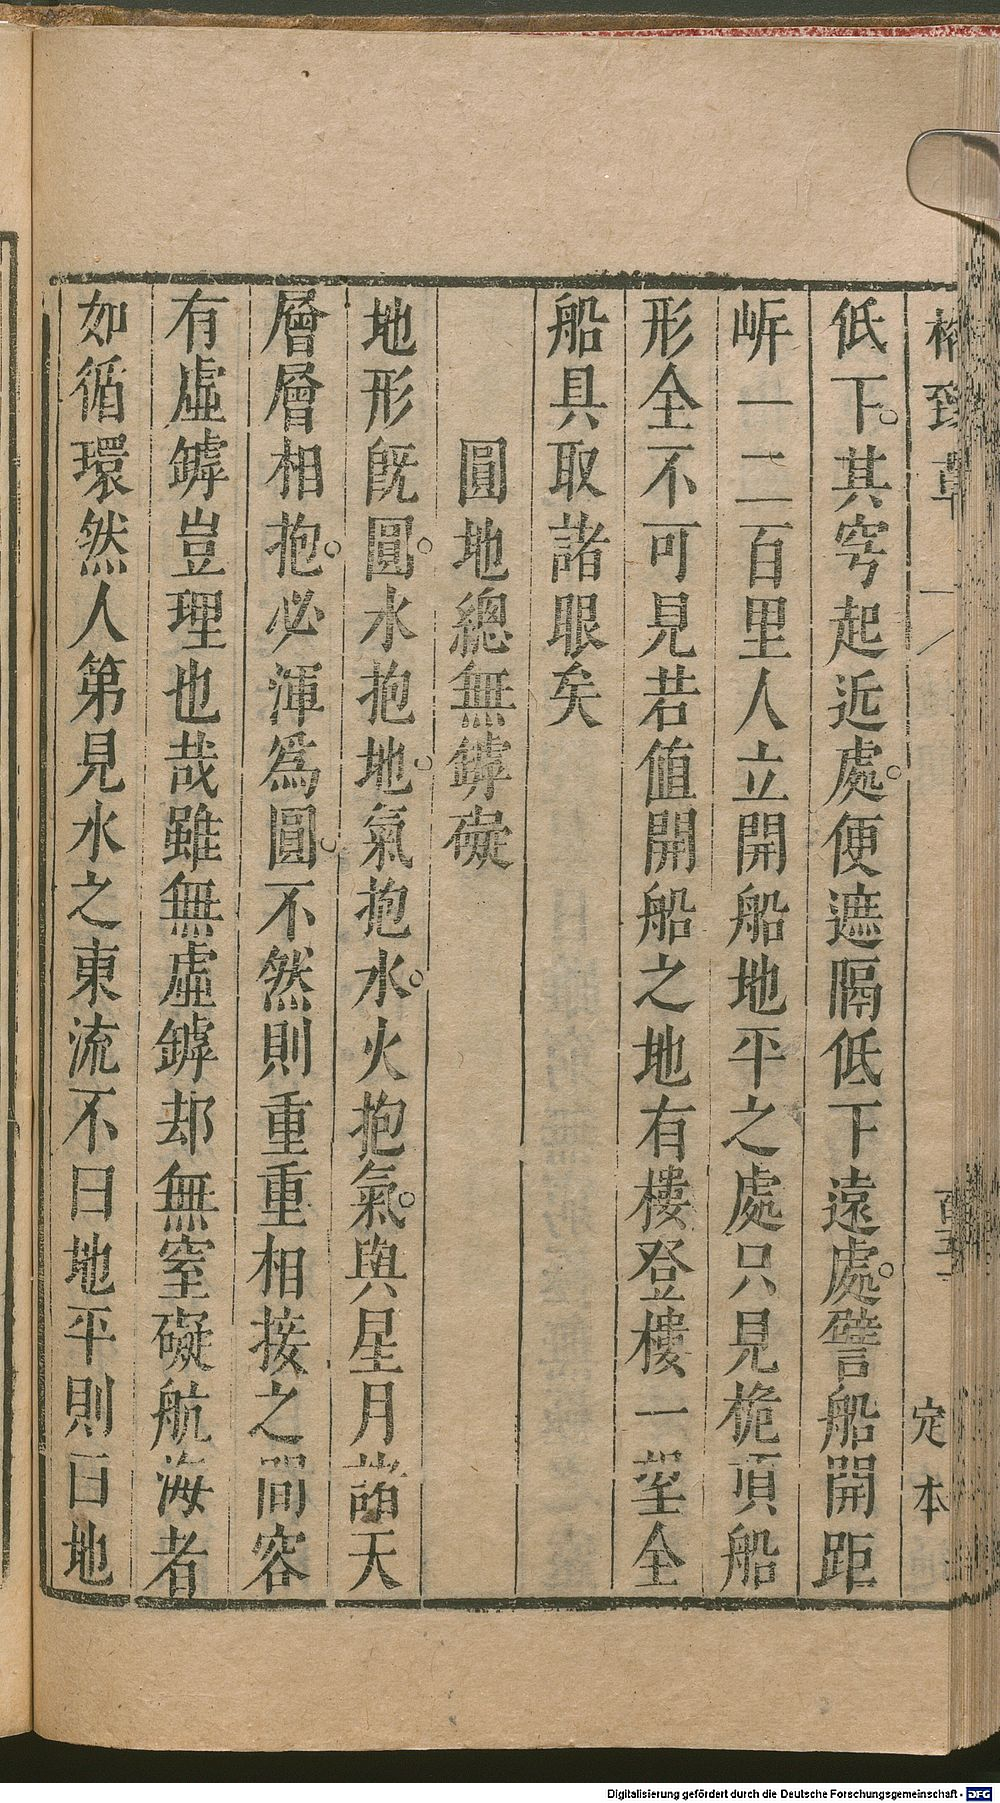 格致草
一
百五
定本
低下。其穹起近處。便遮隔低下遠處。譬船開距
㟁一二百里人立開船地平之處只見桅頂船
形全不可見若值開船之地有樓登樓一望全
船具取諸眼矣
圓地總無罅礙
地形旣圓。水抱地。氣抱水。火抱氣。與星月諸天
層層相抱。必渾爲圓。不然則重重相接之間容
有虛罅豈理也哉雖無虛罅却無窒礙航海者
如循環然人第見水之東流不曰地平則曰地
Digitalisierung gefördert durch die Deutsche Forschungsgemeinschaft - DFG